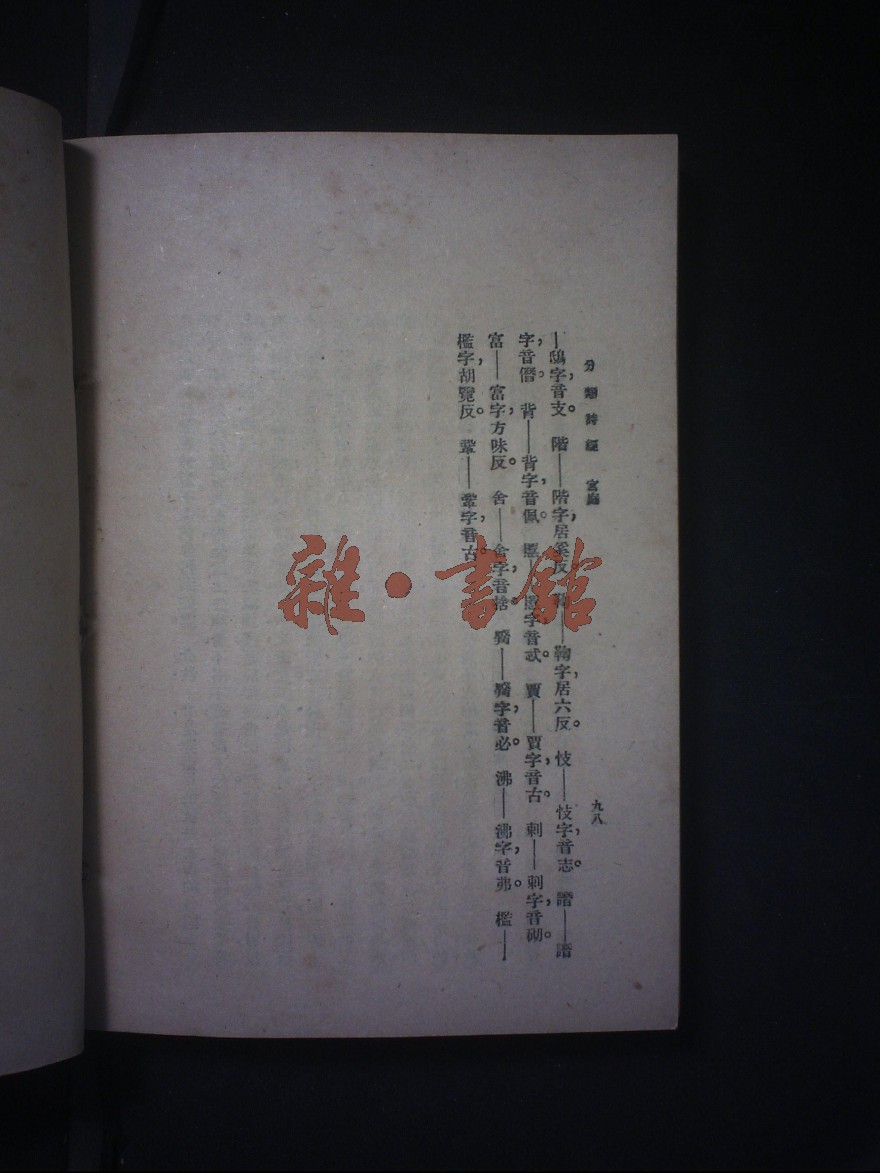 分類詩經 宮廟
九八
—鴟字,音支。 階——階字,居奚反 鞫——鞫字,居六反。 忮——忮字,音志。 譖——譖
字,音僭。 背——背字,音佩。 慝——慝字,音忒。 賈——賈字,音古。 刺——刺字,音砌。
富——富字,方味反。 舍——舍字,音捨。 觱——觱字,音必。 沸——沸字,音弗。 檻——
檻字,胡覽反。 鞏——鞏字,音古。
雜·書館